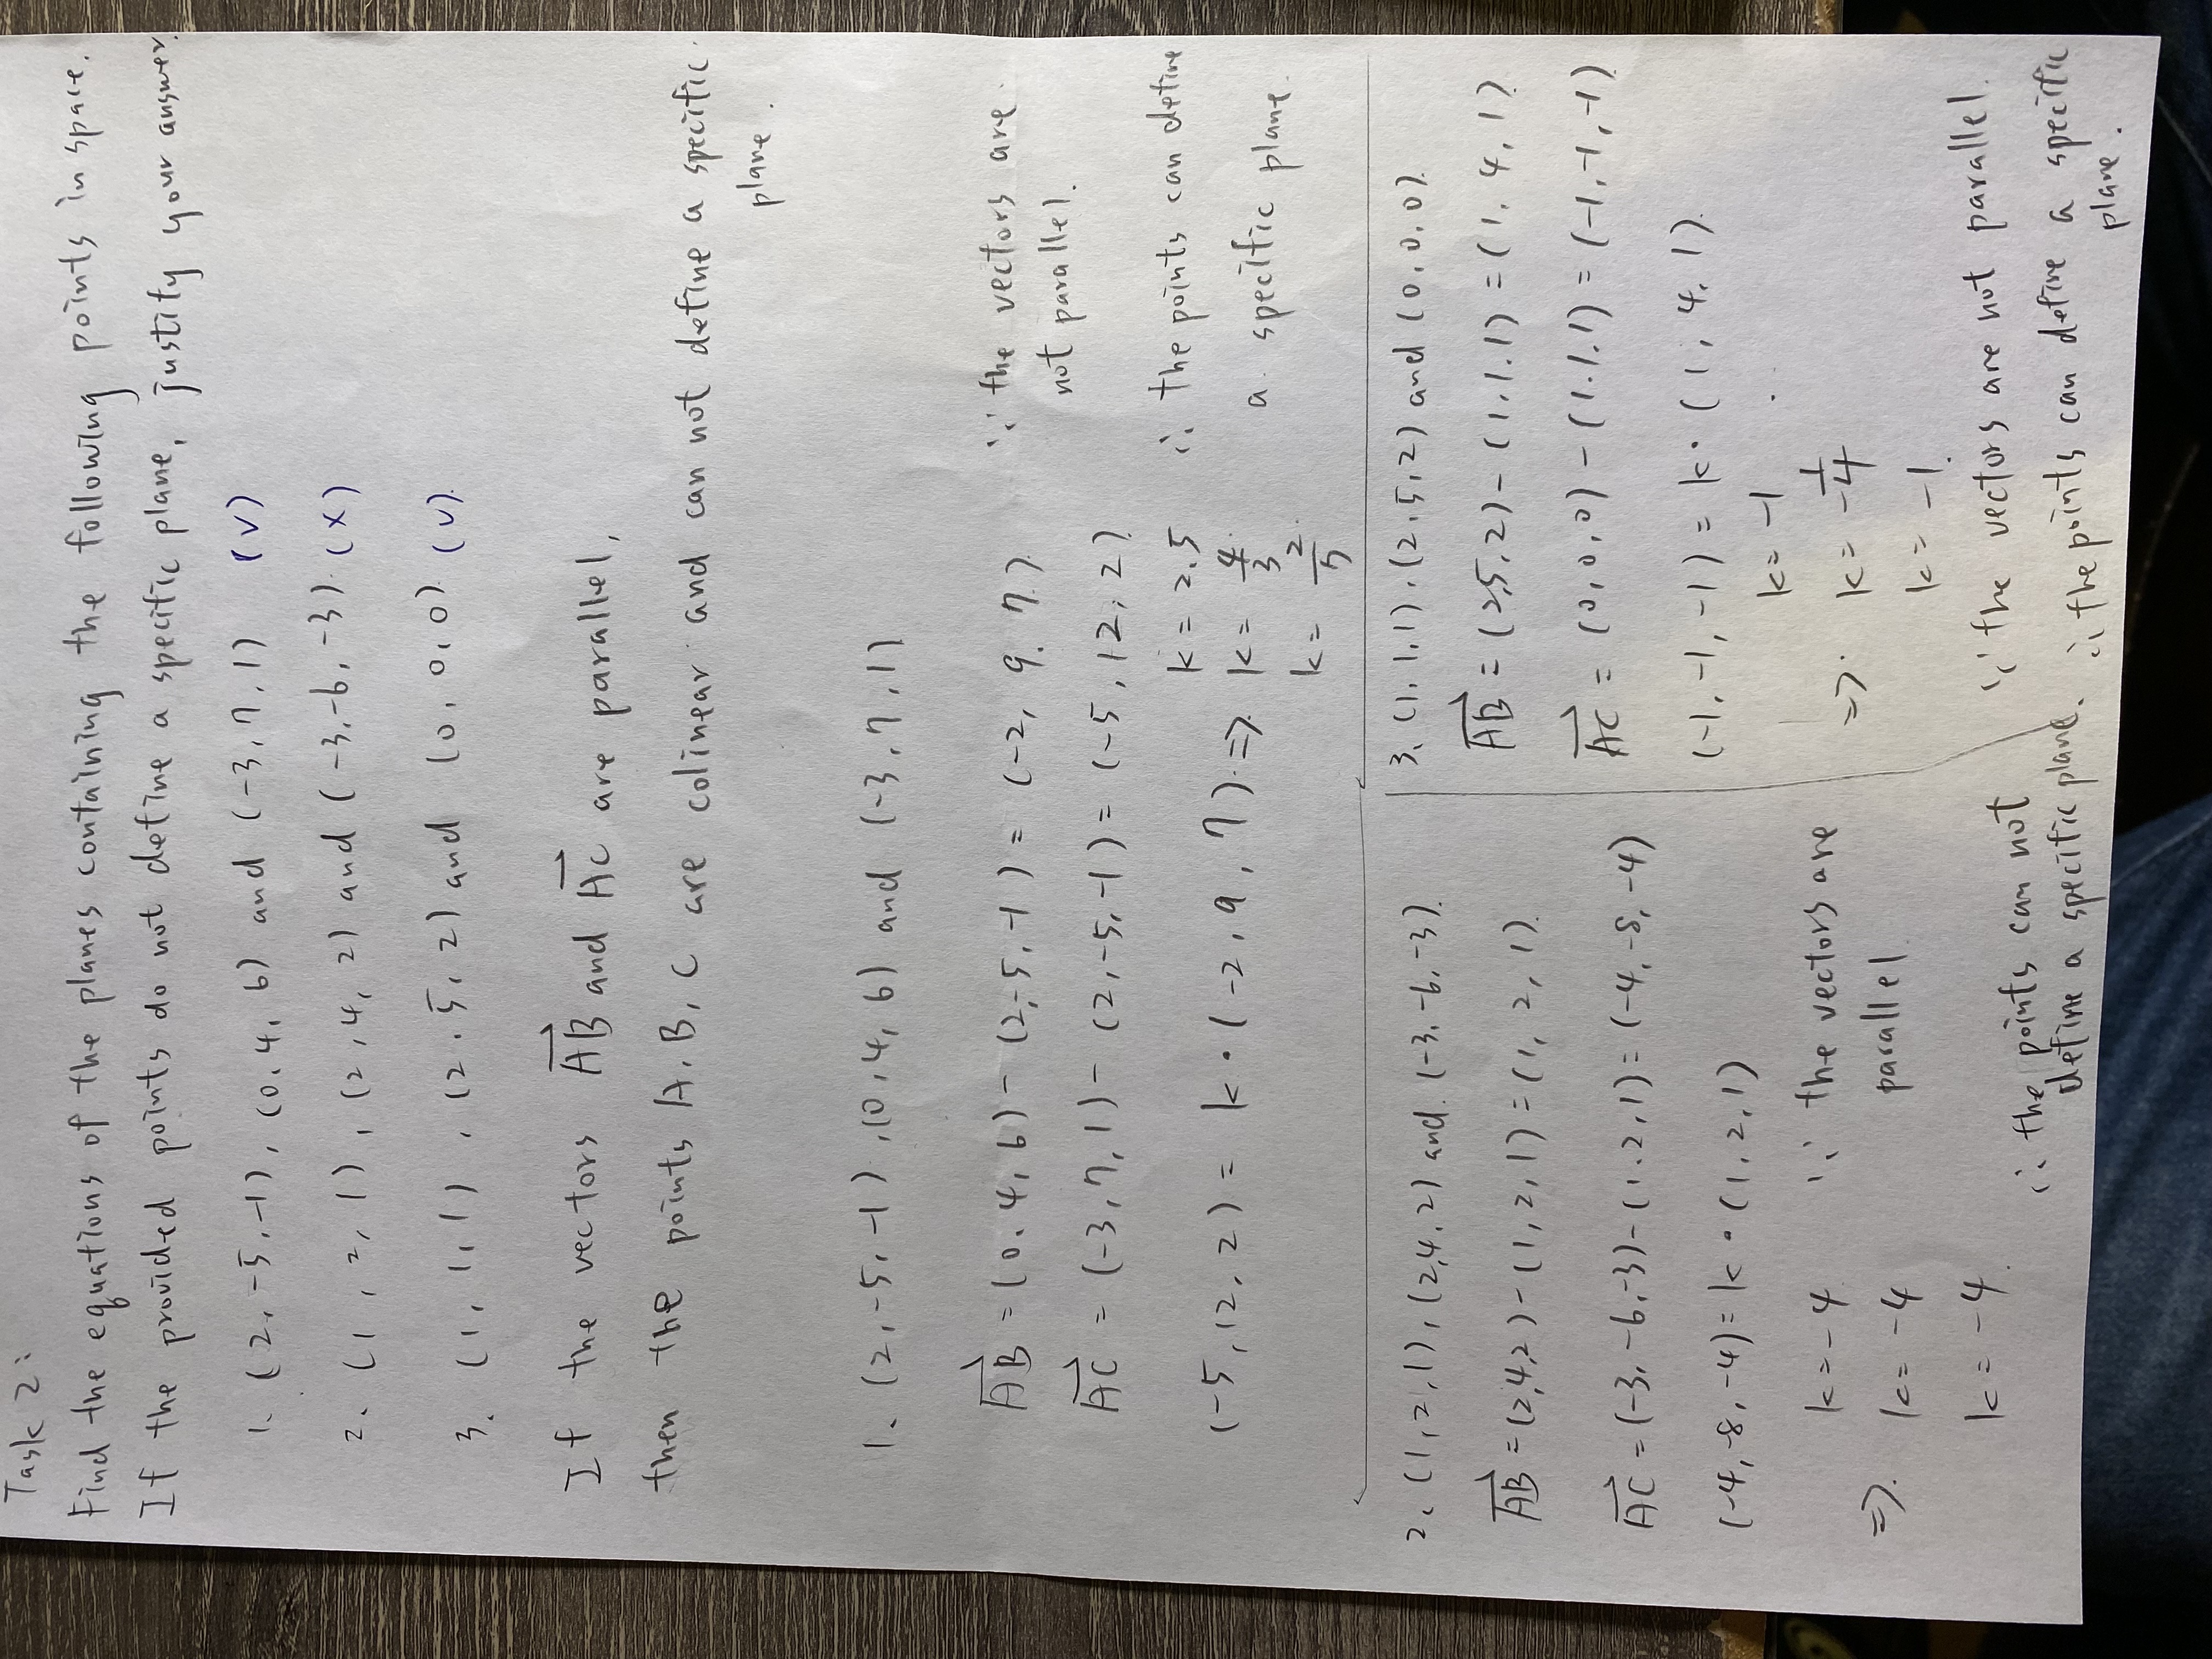 Task 2:
Find the equations of the planes containing the following points in space.
If the provided points do not define a specific plane, justify your answer.
1. (2, -5, -1), (0, 4, 6) and (-3, 7, 1) (V)
2. (1, 2, 1), (2, 4, 2) and (-3, -6, -3). (X)
3. (1, 1, 1), (2, 5, 2) and (0, 0, 0). (V).
If the vectors AB and AC are parallel,
then the points A, B, C are colinear and can not define a specific
plane.
1. (2, -5, -1), (0, 4, 6) and (-3, 7, 1)
AB = (0, 4, 6) - (2, -5, -1) = (-2, 9, 7)
∵ the vectors are
not parallel.
AC = (-3, 7, 1) - (2, -5, -1) = (-5, 12, 2)
(-5, 12, 2) = k · (-2, 9, 7) ⇒
k = 2.5
k = 4/3
k = 2/7
∴ the points can define
a specific plane.
2. (1, 2, 1), (2, 4, 2) and (-3, -6, -3).
AB = (2, 4, 2) - (1, 2, 1) = (1, 2, 1).
AC = (-3, -6, -3) - (1, 2, 1) = (-4, -8, -4)
(-4, -8, -4) = k · (1, 2, 1)
⇒
k = -4
k = -4
k = -4
∵ the vectors are
parallel
∴ the points can not
define a specific plane.
3. (1, 1, 1), (2, 5, 2) and (0, 0, 0).
AB = (2, 5, 2) - (1, 1, 1) = (1, 4, 1)
AC = (0, 0, 0) - (1, 1, 1) = (-1, -1, -1)
(-1, -1, -1) = k · (1, 4, 1).
⇒
k = -1
k = -1/4
k = -1
∵ the vectors are not parallel.
∴ the points can define a specific
plane.